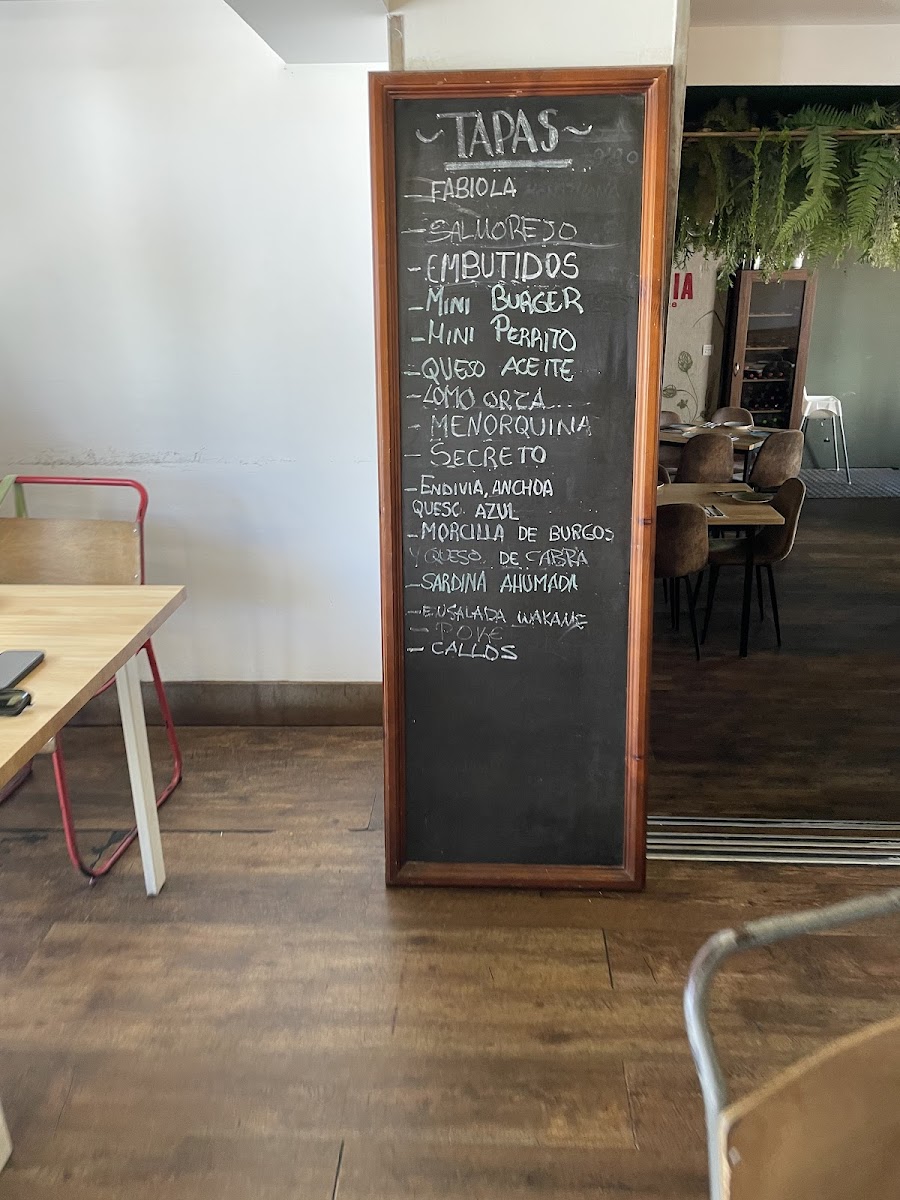 ~ TAPAS ~
- FABIOLA
- SALMOREJO
- EMBUTIDOS
- MINI BURGER
- MINI PERRITO
- QUESO ACEITE
- LOMO ORZA
- MENORQUINA
- SECRETO
- ENDIVIA, ANCHOA
QUESO AZUL
- MORCILLA DE BURGOS
Y QUESO DE CABRA
- SARDINA AHUMADA
- ENSALADA WAKAME
- POKE
- CALLOS
IA